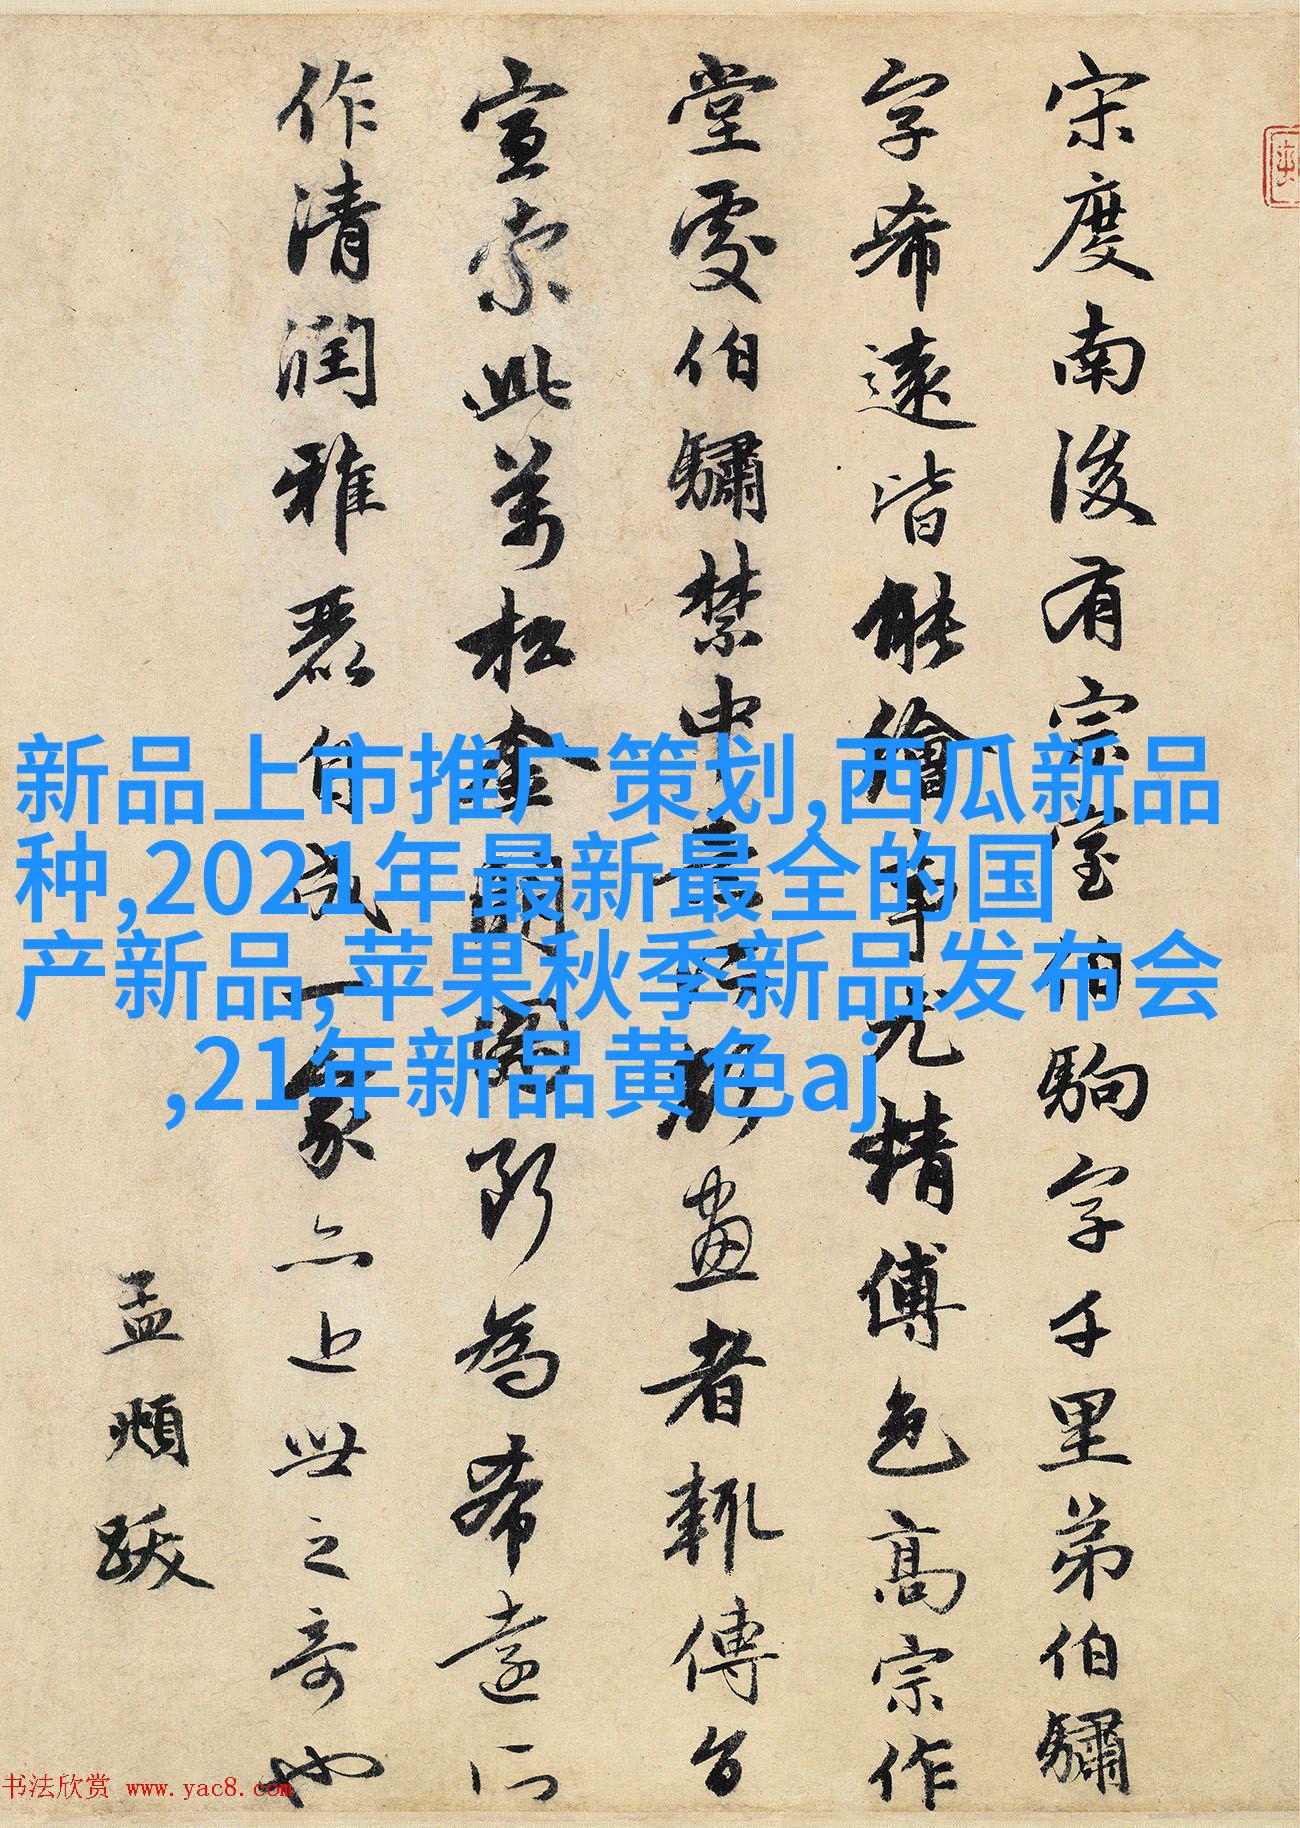 宋度南後有宗室伯駒字千里弟伯驌
字希遠皆能繪事尤精傅色高宗作
堂處伯驌禁中意所欲畫者輒傳旨
宣索此萬松金斷為希遠所
作清潤雅麗自成一家亦近世之奇也
孟頫跋
新品上市推广策划,西瓜新品
种,2021年最新最全的国
产新品,苹果秋季新品发布会
,21年新品黄色aj
书法欣赏 www.yac8.com